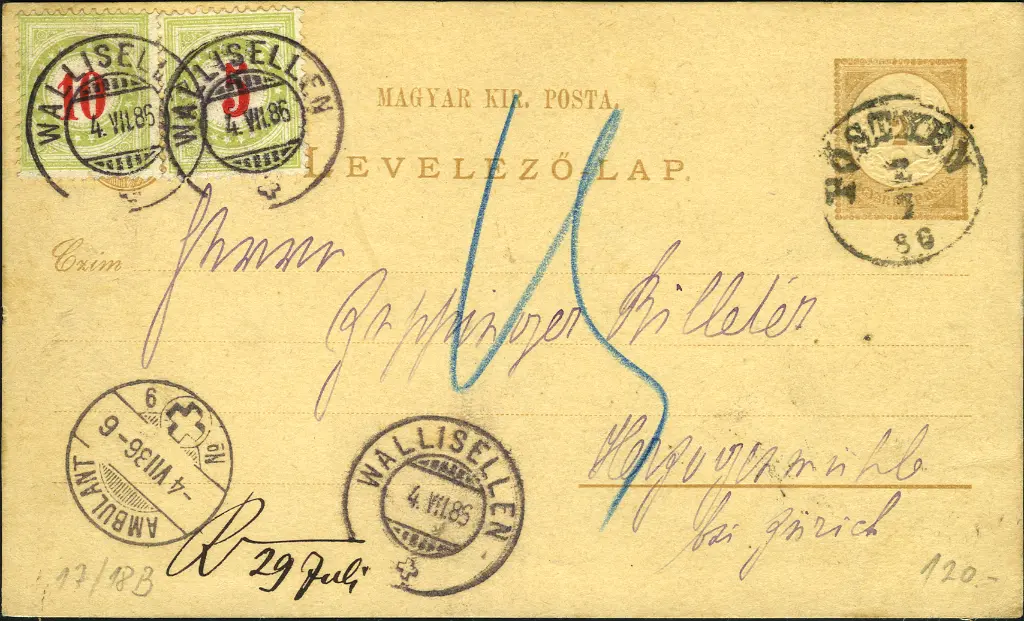 10
5
WALLISELLEN
4.VII.86
WALLISELLEN
4.VII.86
MAGYAR KIR. POSTA.
LEVELEZŐ-LAP.
PÖSTYÉN
2
7
86
Czim
Herrn
Billeter
Herzogenmühle
bei Zürich
15
AMBULANT
No 9
-4 VII 86-6
WALLISELLEN
4.VII.86
R 29 Juli
17/18B
120.-